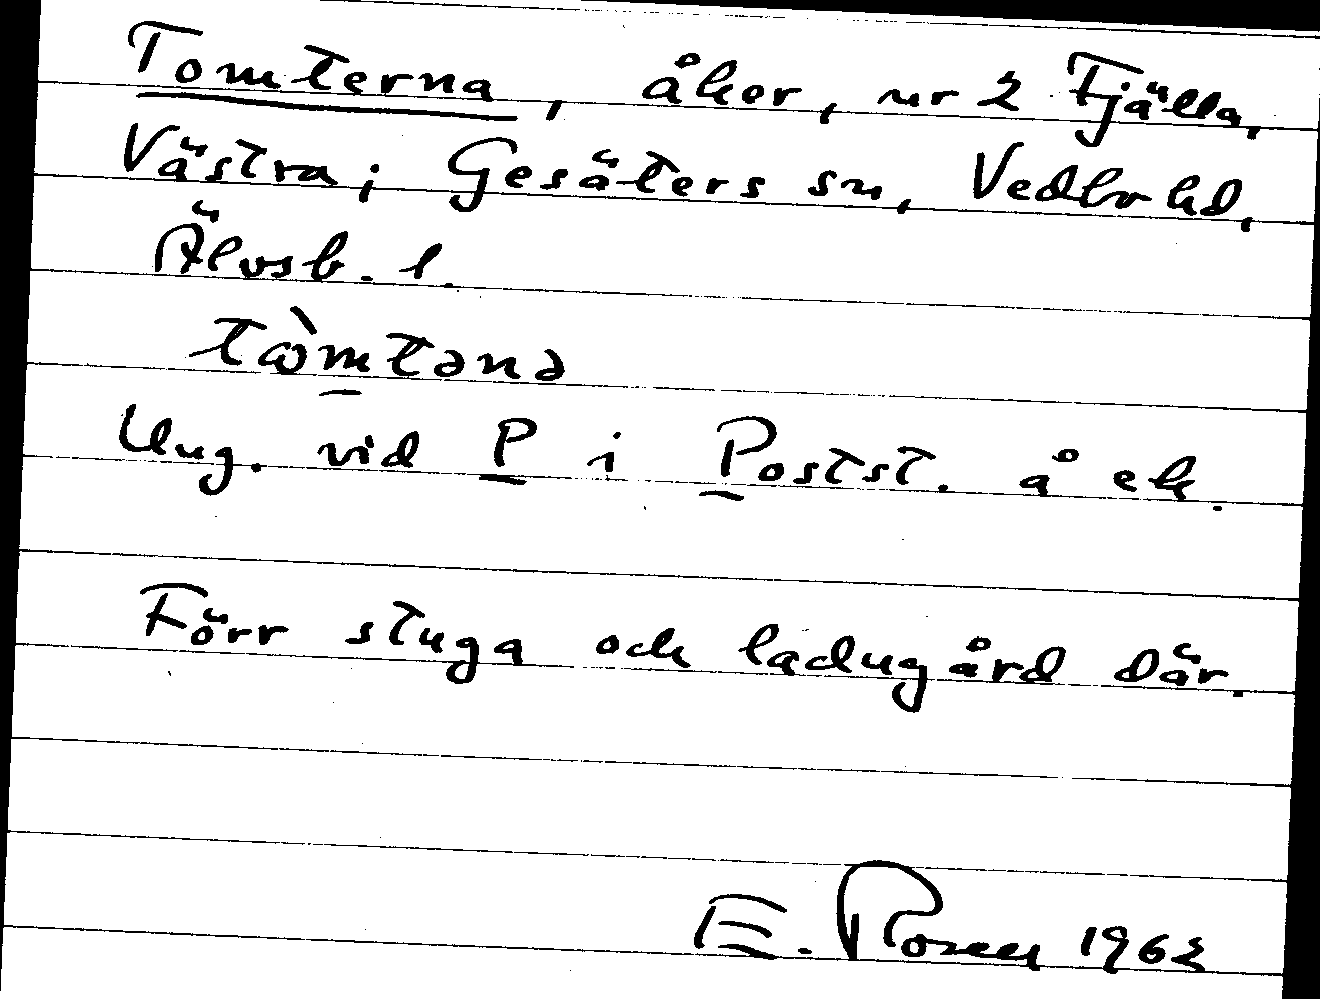 Tomterna, åker, nr 2 Fjälla,
Västra; Gesäters sn, Vedbo hd,
Älvsb. l.
tòmtənə
Ung. vid P i Postst. å ek.
Förr stuga och ladugård där.
E. Rosen 1962